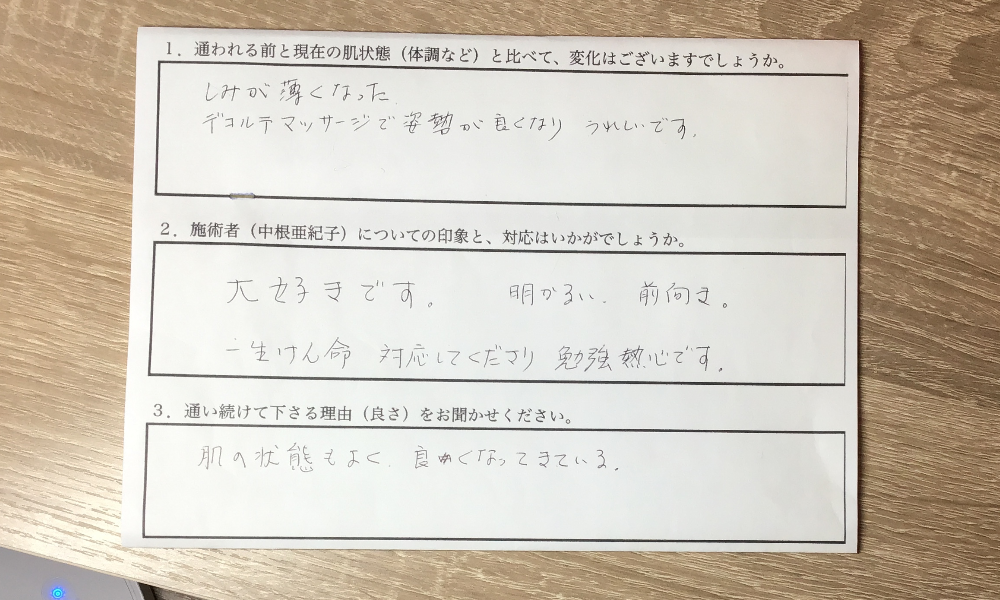 1．通われる前と現在の肌状態（体調など）と比べて、変化はございますでしょうか。
しみが薄くなった.
デコルテマッサージで姿勢が良くなり うれしいです.
2．施術者（中根亜紀子）についての印象と、対応はいかがでしょうか。
大好きです。 明かるい. 前向き。
一生けん命 対応してくださり 勉強熱心です。
3．通い続けて下さる理由（良さ）をお聞かせください。
肌の状態もよく. 良くなってきている.